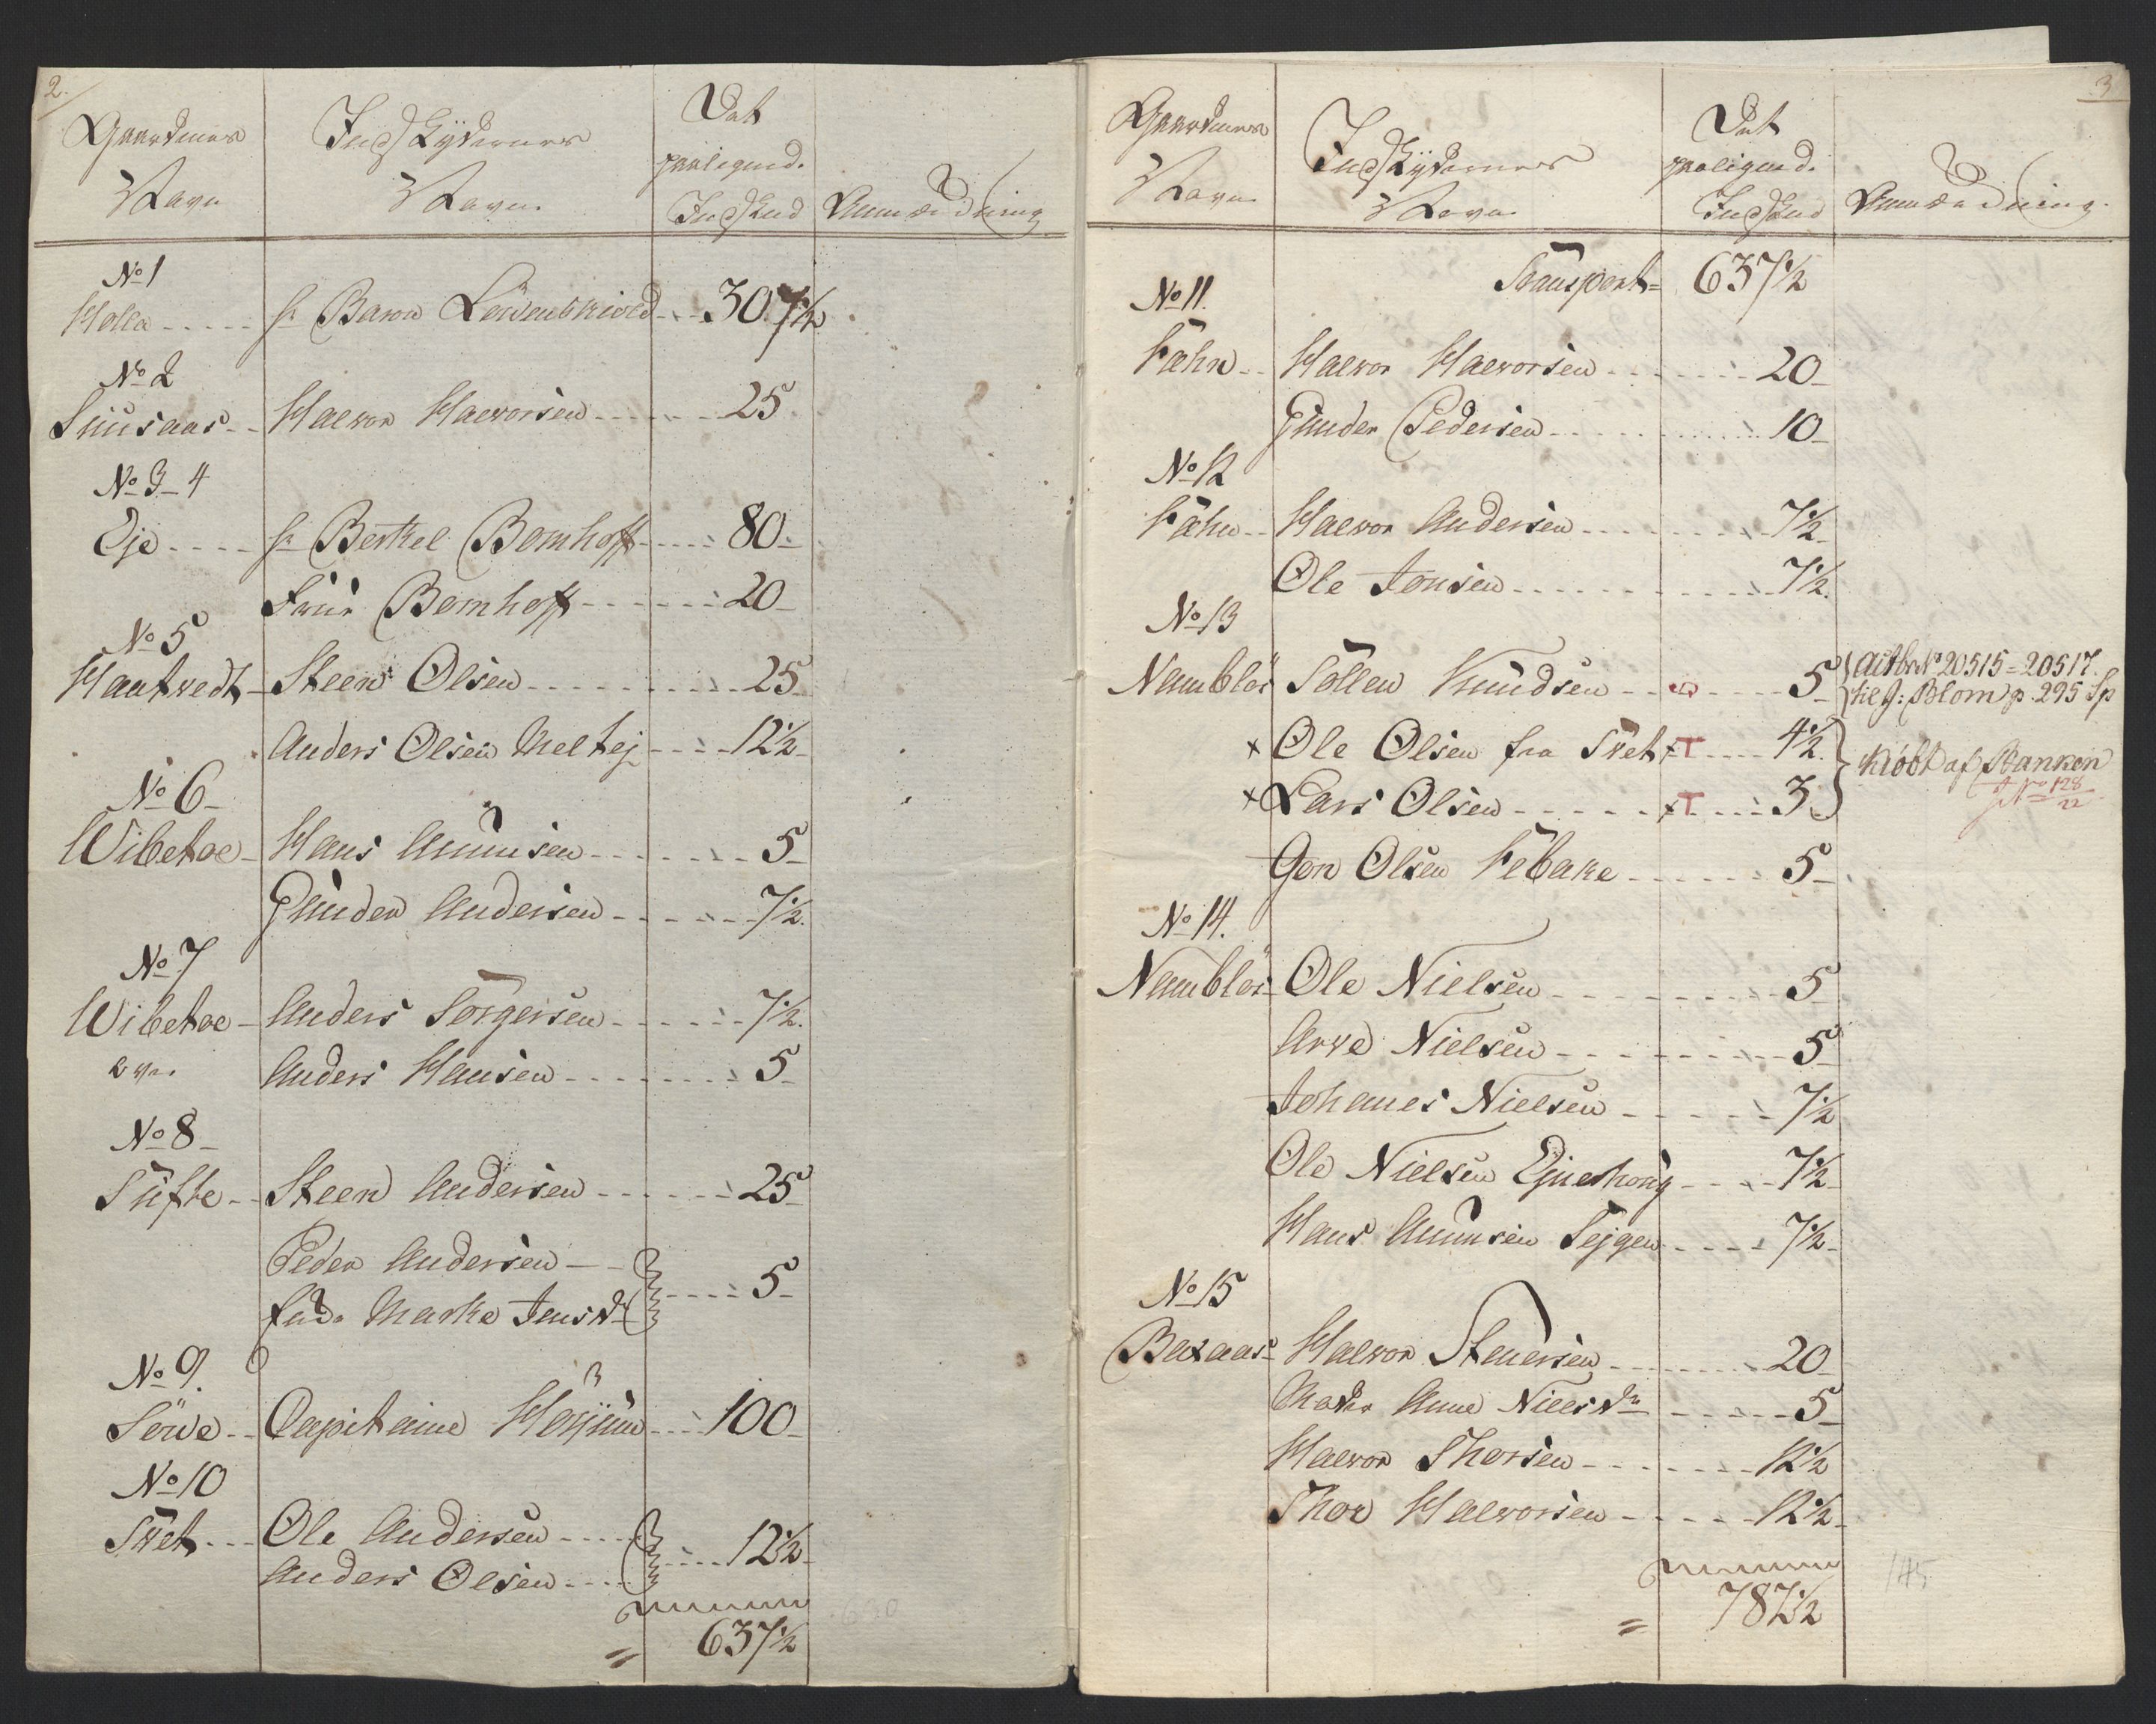 2.
Gaardenes Navn | Indskydernes Navn. | Det paaligend. Indskud | Anmærdning
No 1
Holla ..... hr Baron Løvenskiold ... 307½
No 2
Snusaas.. Halvor Halvorsen ..... 25
No 3_4
Eje .... hr Bertel Bomhoff .... 80.
Frue Bomhoff ..... 20
No 5
Haatvedt Steen Olsen ..... 25
Anders Olsen Meltej .... 12½
No 6
Wibetoe Hans Amunsen ..... 5
Gunder Andersen ..... 7½
No 7
Wibetoe Anders Torgersen ..... 7½
Anders Hansen ..... 5
No 8
Tufte .. Steen Andersen ..... 25
Peder Andersen
Marthe Jensdr .... 5
No 9.
Søwe .. Capitaine ... 100
No 10
Tvet ... Ole Andersen ....
Anders Olsen .... 12½
= 637½
3
Gaardenes Navn. | Indskydernes Navn | Det paaligend. Indskud | Anmærdning.
Transport= 637½
No 11.
Fæhn.. Halvor Halvorsen ..... 20
Gunder Pedersen ..... 10
No 12
Fæhn.. Halvor Andersen ..... 7½
Ole Jonsen ..... 7½
No 13
Nambløs Tollew Knudsen ..... 5 Actbr No 20515=20517.
til J: Blom p. 295 Sp
x Ole Olsen fra Tvet xT .... 4½
x Lars Olsen ..... xT ... 3 } kiøbt af Banken
J No 128/22
Gon Olsen Febake ..... 5
No 14.
Nambløs Ole Nielsen ..... 5
Arve Nielsen ..... 5
Johanes Nielsen ..... 7½
Ole Nielsen Ejneshoug .... 7½
Hans Amunsen Tejgen .... 7½
No 15
Baxaas Halvor Stenersen ..... 20
Moder Anne Nielsdr ..... 5
Halvor Thorsen ..... 12½
Thor Halvorsen ..... 12½
= 787½
145